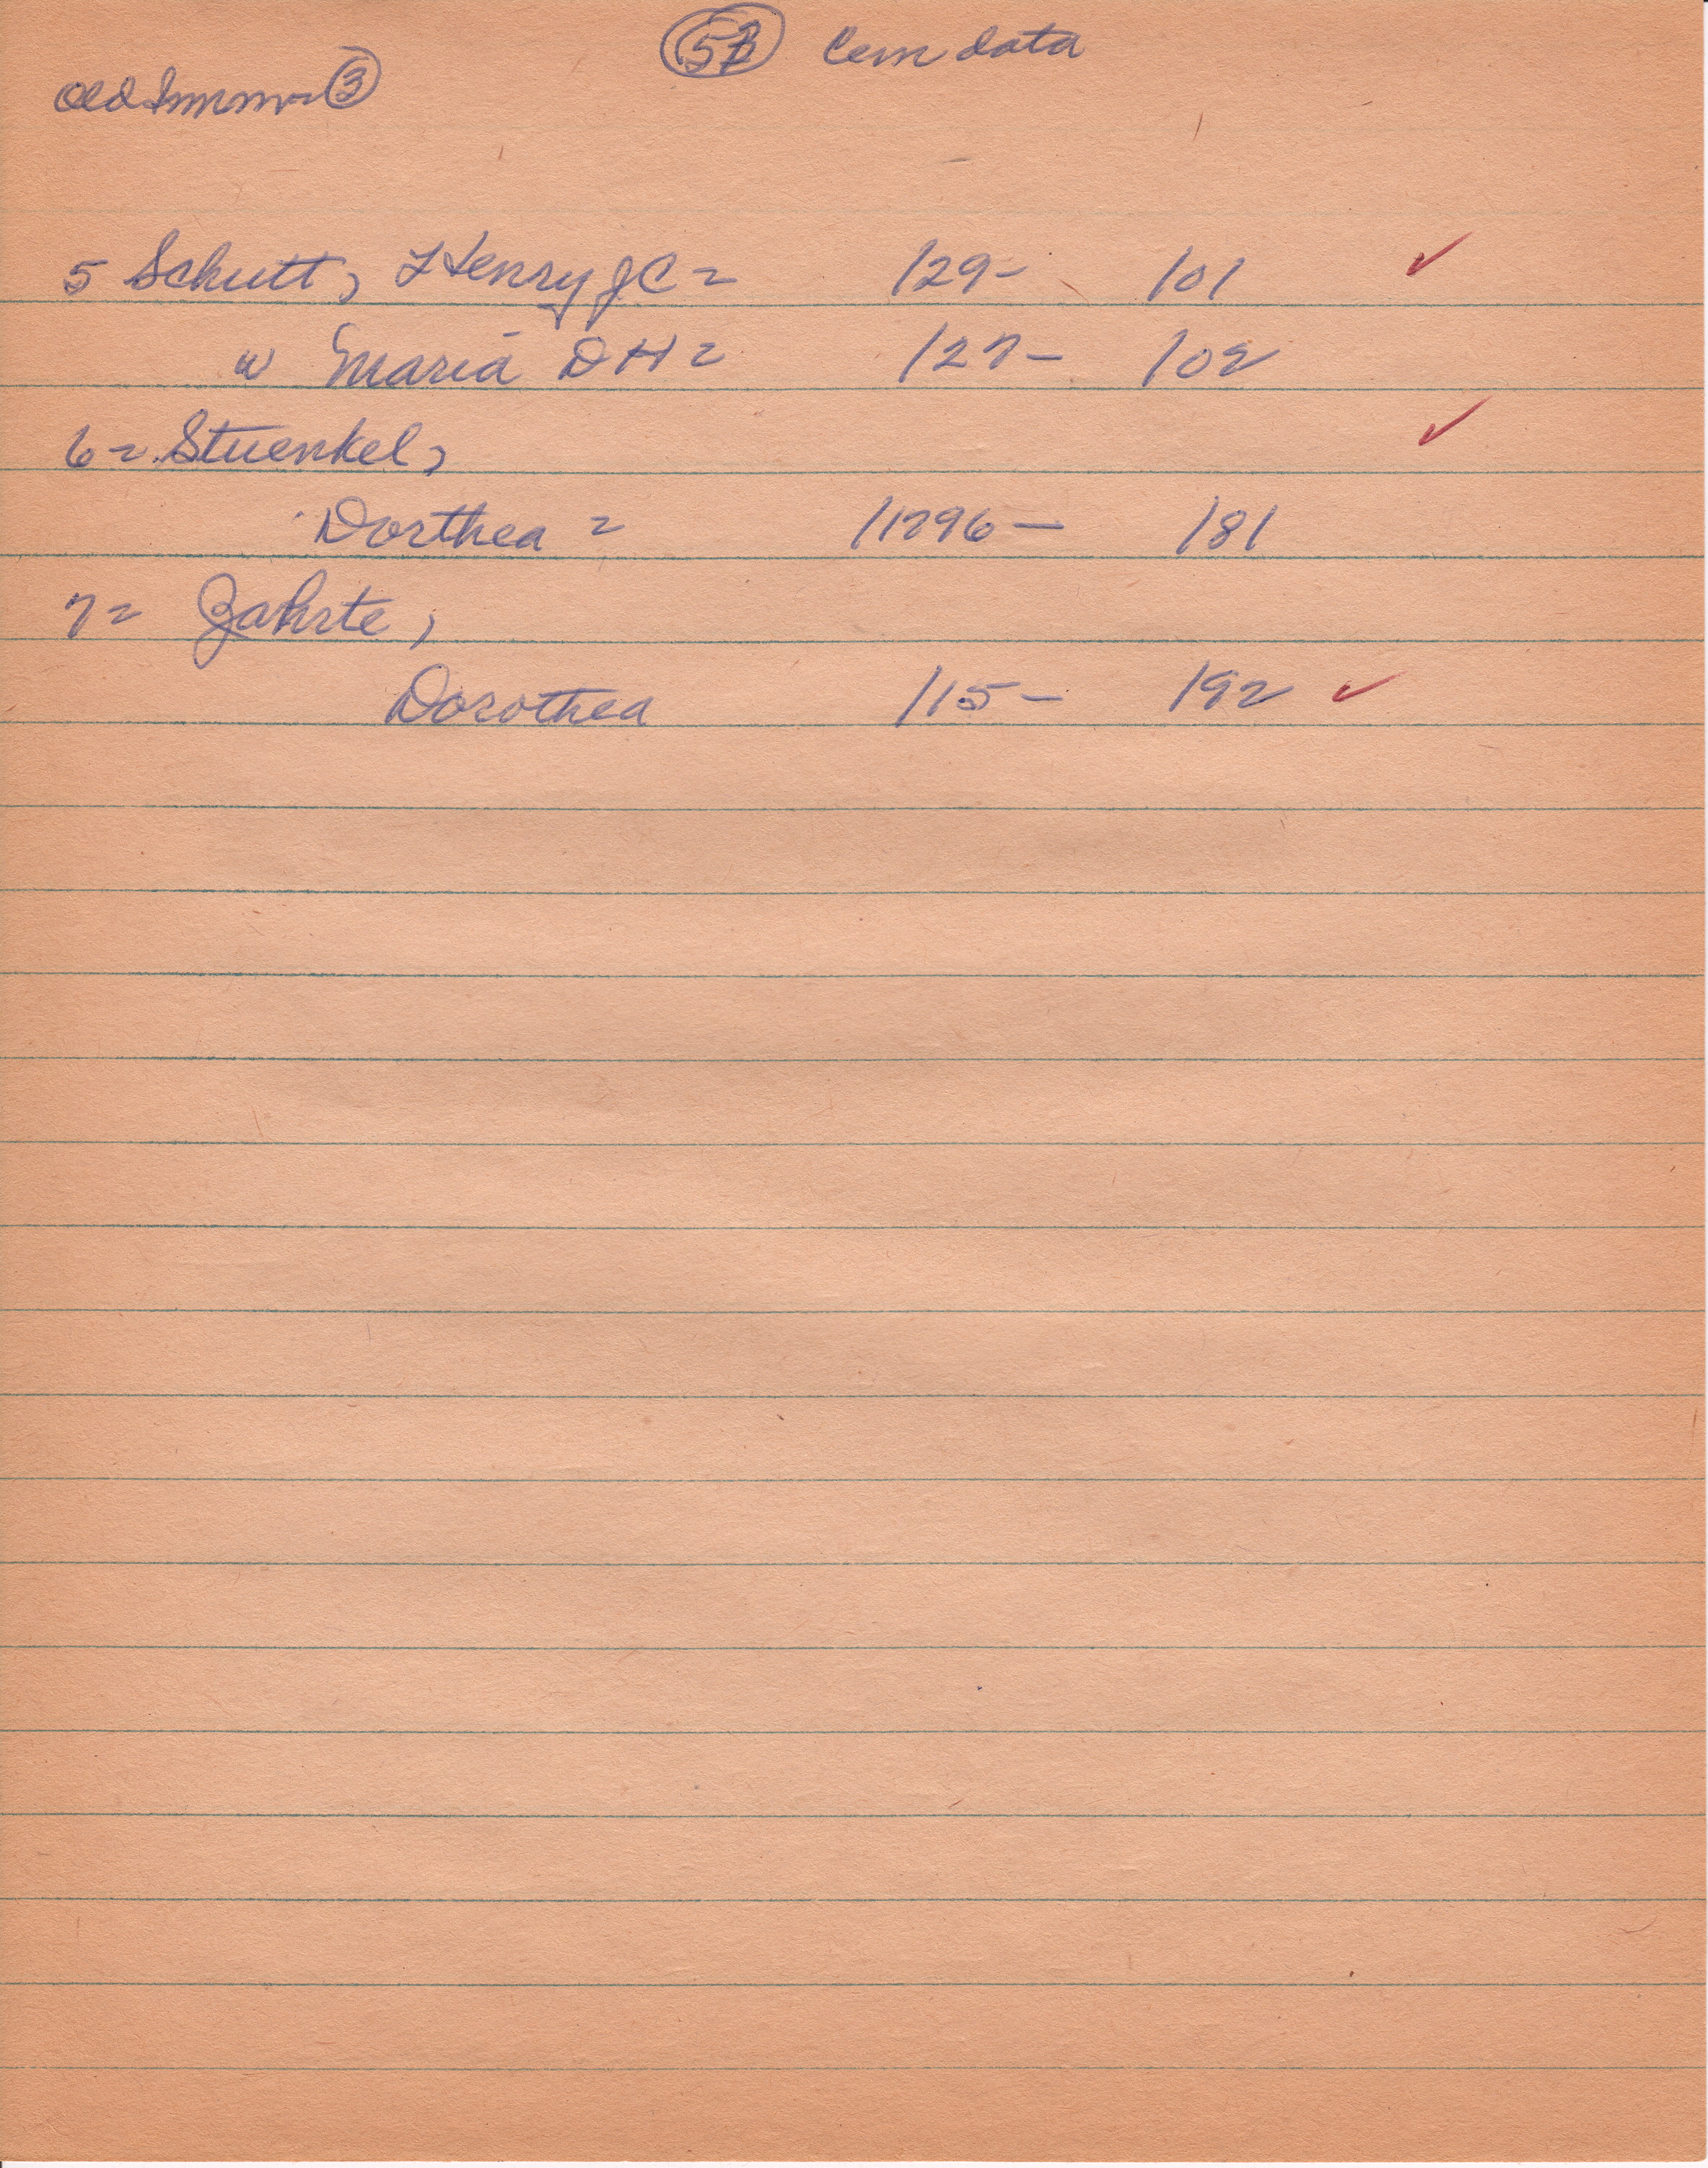 5B Cem data
Old Imm - 3
5 Schutt, Henry J C = /29- /01 ✓
w Maria D H = /27- /02
6 = Stuenkel, ✓
Dorthea = /1796- /81
7 = Zahrte,
Dorothea /15- /92 ✓